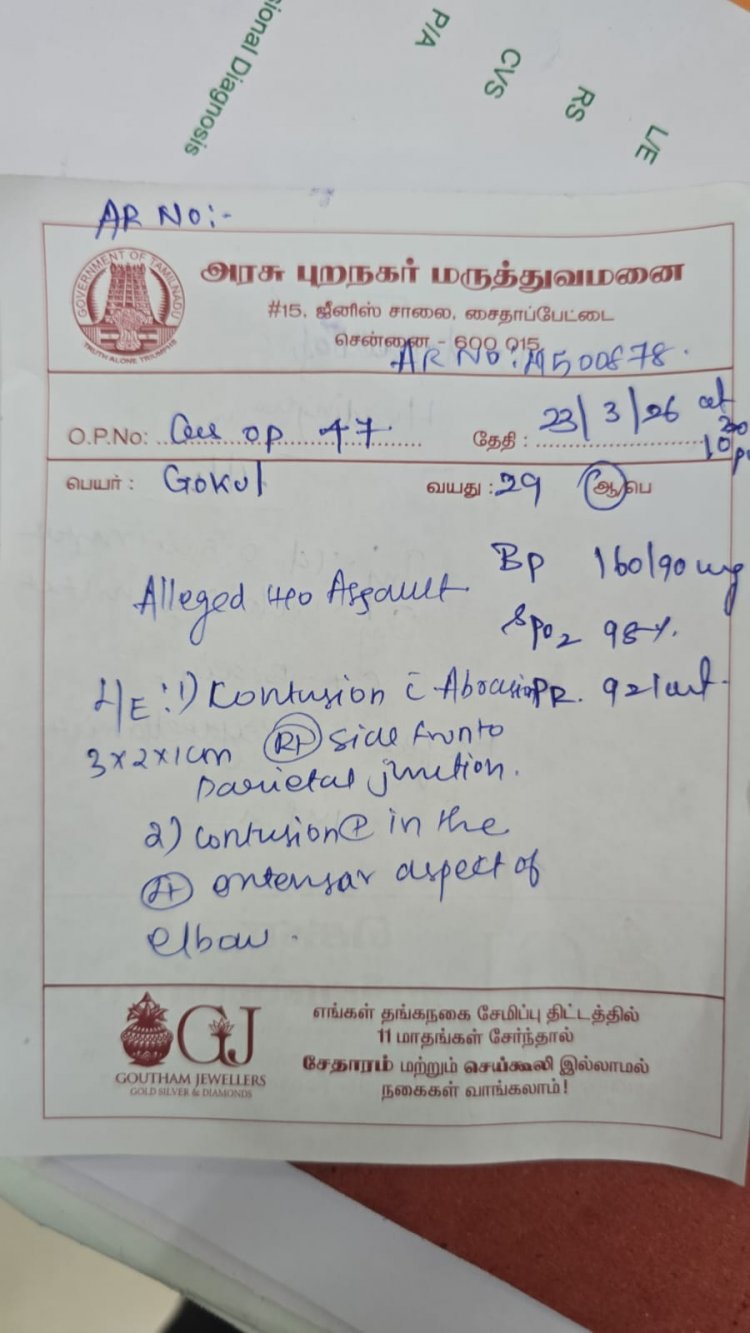 sional Diagnosis
P/A
CVS
RS
L/E
AR NO:-
GOVERNMENT OF TAMILNADU
TRUTH ALONE TRIUMPHS
அரசு புறநகர் மருத்துவமனை
#15, ஜீனிஸ் சாலை, சைதாப்பேட்டை
சென்னை - 600 015
AR NO: A500878.
O.P.No: op 47
தேதி : 23/3/26 at
பெயர் : Gokul வயது : 29 ஆ/பெ
Bp 160/90 mg
Alleged H/o Assault
SpO2 98%.
L/E : 1) Contusion c̄ Abrasion PR. 92/mt.
3x2x1cm Rt side fronto
parietal junction.
2) contusion in the
extensar aspect of
elbow.
GJ
GOUTHAM JEWELLERS
GOLD SILVER & DIAMONDS
எங்கள் தங்கநகை சேமிப்பு திட்டத்தில்
11 மாதங்கள் சேர்ந்தால்
சேதாரம் மற்றும் செய்கூலி இல்லாமல்
நகைகள் வாங்கலாம்!